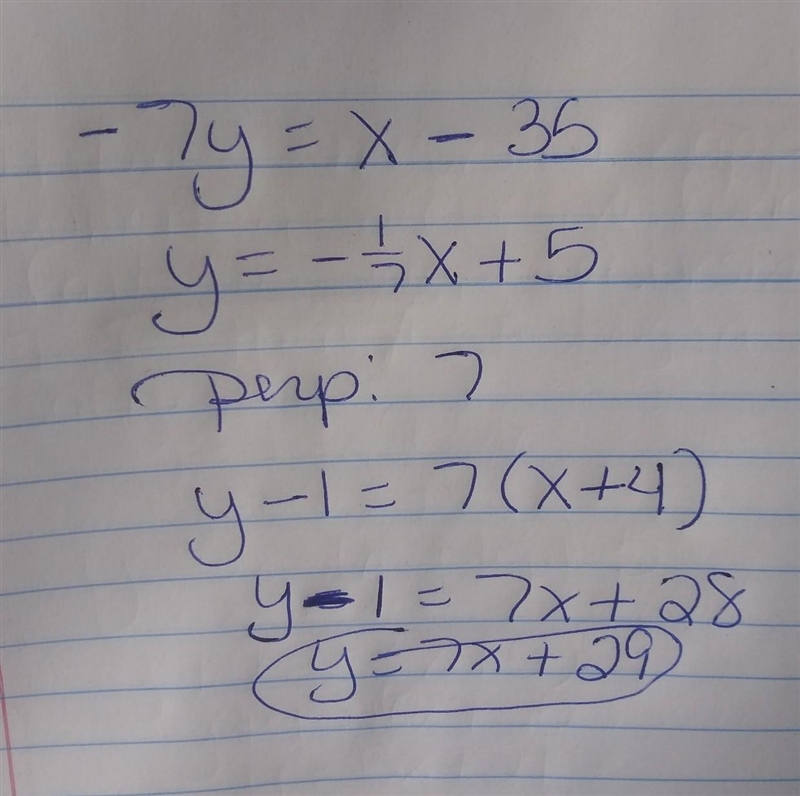 -7y = x - 35
y = -1/7x + 5
perp: 7
y - 1 = 7(x+4)
y - 1 = 7x + 28
y = 7x + 29